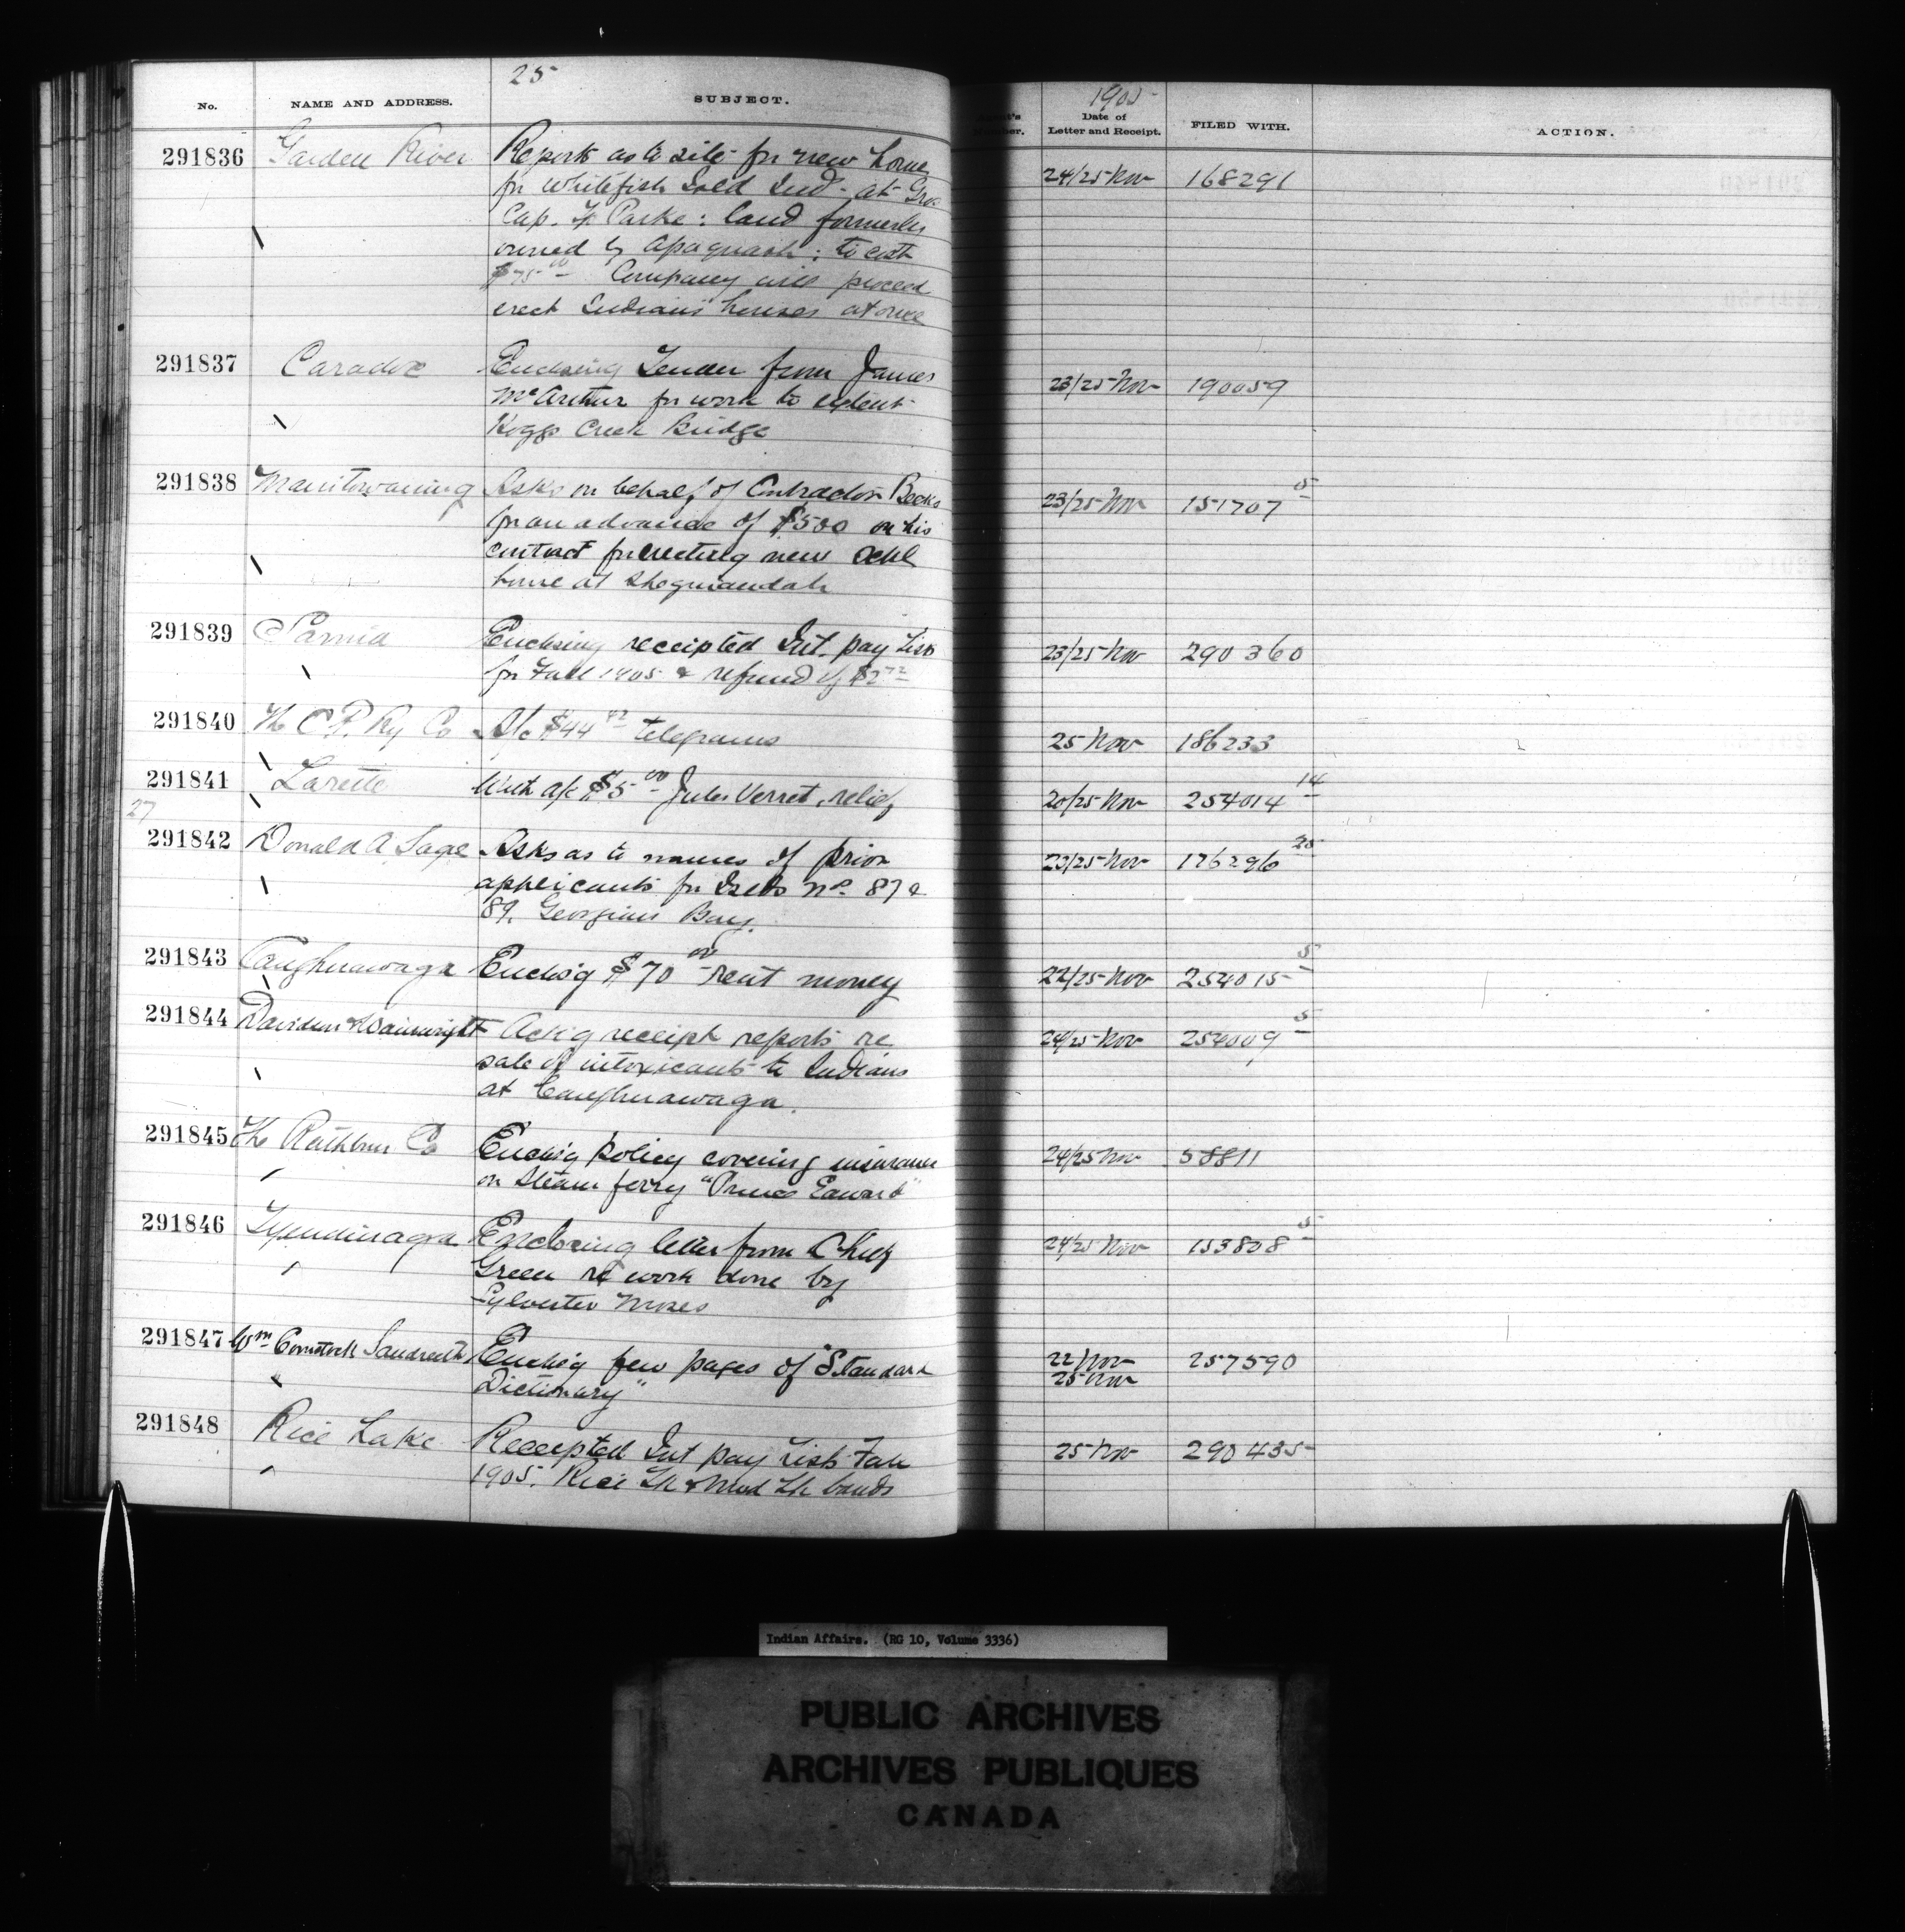 25
No. NAME AND ADDRESS. SUBJECT.
1905
Date of Letter and Receipt. FILED WITH. ACTION.
291836 Garden River Reports as to site for new home 24/25 Nov 168291
for Whitefish Isld Ind. at Gros
Cap. Tp Parke: land formerly
owned by Apaquash: to cost
$75.00 Company will proceed
erect Indians houses at once
291837 Caradoc Enclosing Tender from James 23/25 Nov 190059
McArthur for work to extent
Hoggs Creek Bridge
291838 Manitowaning Asks on behalf of Contractor Becks 23/25 Nov 151707 5
for an advance of $500 on his
contract for erecting new Schl
house at Sheguiandah
291839 Sarnia Enclosing receipted Int. pay List 23/25 Nov 290360
for Fall 1905 & refund of $2.72
291840 The C. P. Ry Co A/c $44.42 telegrams 25 Nov 186233
291841 Lorette With a/c $5.00 Jules Verret, relief 20/25 Nov 254014 14
27
291842 Donald A Sage Asks as to names of prior 23/25 Nov 176296 25
applicants for Islds No. 87 &
89. Georgian Bay.
291843 Caughnawaga Enclos'g $70.00 rent money 22/25 Nov 254015 5
291844 Davidson & Wainwright Ack'g receipt reports re 24/25 Nov 254009 5
sale of intoxicants to Indians
at Caughnawaga.
291845 The Rathbun Co Enclos'g policy covering insurance 24/25 Nov 58811
on Steam ferry "Prince Edward"
291846 Tyendinaga Enclosing letter from Chief 24/25 Nov 153808 5
Green re work done by
Sylvester Moses
291847 Wm Comstock Enclos'g few pages of "Standard 22 Nov 257590
Dictionary" 25 Nov
291848 Rice Lake Receipted Int pay List Fall 25 Nov 290435
1905. Rice Lk & Mud Lk bands
Indian Affairs. (RG 10, Volume 3336)
PUBLIC ARCHIVES
ARCHIVES PUBLIQUES
CANADA